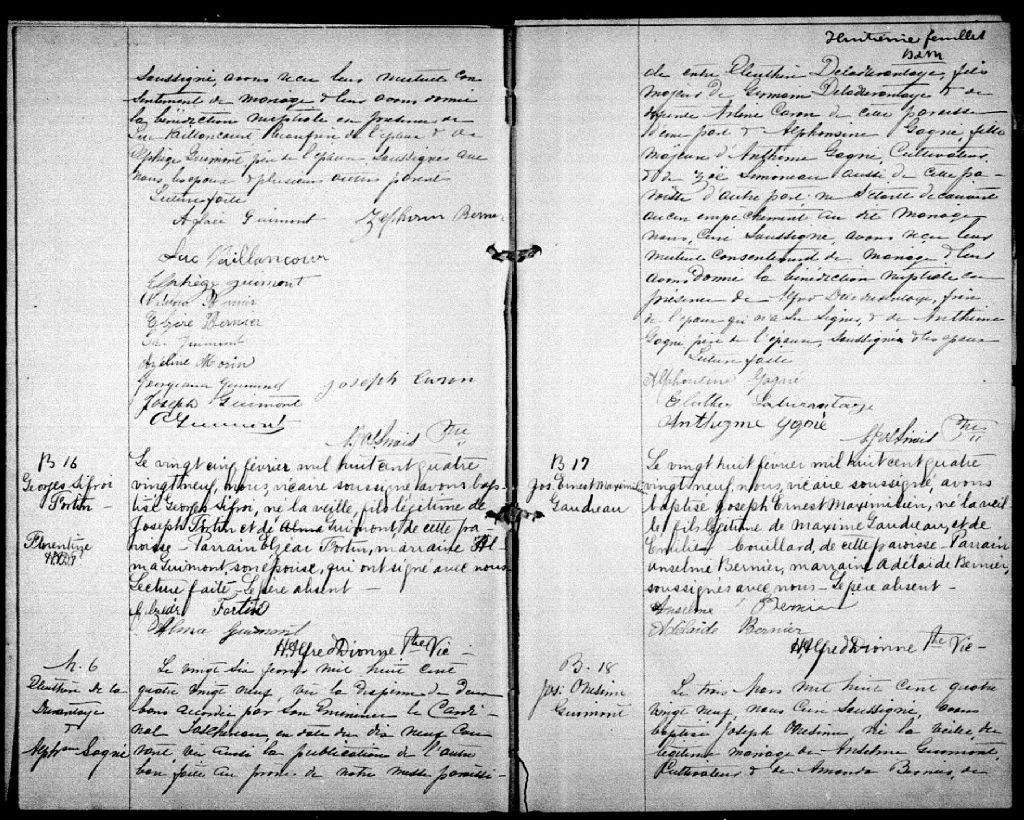 Soussigné, avons reçu leur mutuel con
sentement de mariage & leur avons donné
la bénédiction nuptiale en présence de
Luc Vaillancourt beaufrère de l'époux & de
Elphège Guimont père de l'épouse soussignés avec
nous les époux & plusieurs autres parents
Lecture faite
Aglaé Guimont Zephirin Bernier
Luc Vaillancour
Elphège guimont
Bernier
Elzire Bernier
Guimont
Azeline Morin
Georgeanna Guimond Joseph Caron
Joseph Guimont
Guimont
Ptre
B 16
Georges Sifroi
Fortin
Florentine
Le vingt cinq février mil huit cent quatre
vingt neuf, nous, vicaire soussigné avons bap-
tisé Georges Sifroi, né la veille, fils légitime de
Joseph Fortin et de Alma Guimont, de cette pa-
roisse - Parrain Elzéar Fortin, marraine Al-
ma Guimont, son épouse, qui ont signé avec nous
Lecture faite - Le père absent -
Elzéar Fortin
Alma Guimont
H. Alfred Dionne Ptre Vic -
M. 6
Eleuthère de la
Durantaye
&
Alphsine Gagné
Le vingt six février mil huit cent
quatre vingt neuf, vu la dispense de deux
bans accordée par Son Eminence le Cardi-
nal Taschereau, en date du dix neuf cou
rant, vu aussi la publication de l'autre
ban faite au prône de notre messe paroissi-
Huitième feuillet
ale entre Eleuthère Deladurantaye, fils
majeur de Germain Deladurantaye & de
défunte Arlène Caron de cette paroisse
d'une part & Alphonsine Gagné, fille
majeure d'Anthime Gagné, Cultivateur,
& de Zoé Simoneau aussi de cette pa-
roisse d'autre part; ne s'étant découvert
aucun empêchement au dit mariage
nous, Curé soussigné, avons reçu leur
mutuel consentement de mariage & leur
avons donné la bénédiction nuptiale en
présence de Deladurantaye, frère
de l'époux qui n'a su signer, & de Anthime
Gagné père de l'épouse, soussigné & les époux
Lecture faite
Alphonsine Gagné
Ladurantaye
Anthyme Gagné
Ptre
B 17
Jos. Ernest Maximilien
Gaudreau
Le vingt huit février mil huit cent quatre
vingt neuf, nous, vicaire soussigné, avons
baptisé Joseph Ernest Maximilien, né la veil
le, fils légitime de Maxime Gaudreau, et de
Emilie Couillard, de cette paroisse - Parrain
Anselme Bernier, marraine Adélaïde Bernier,
soussignés avec nous - Le père absent -
Anselme Bernier
Adélaïde Bernier
H. Alfred Dionne Ptre Vic -
B. 18
Jos: Onésime
Guimont
Le trois Mars mil huit cent quatre
vingt neuf, nous Curé soussigné, avons
baptisé Joseph Onésime né la veille, du
légitime mariage de Anselme Guimont,
Cultivateur & de Amanda Bernier, de